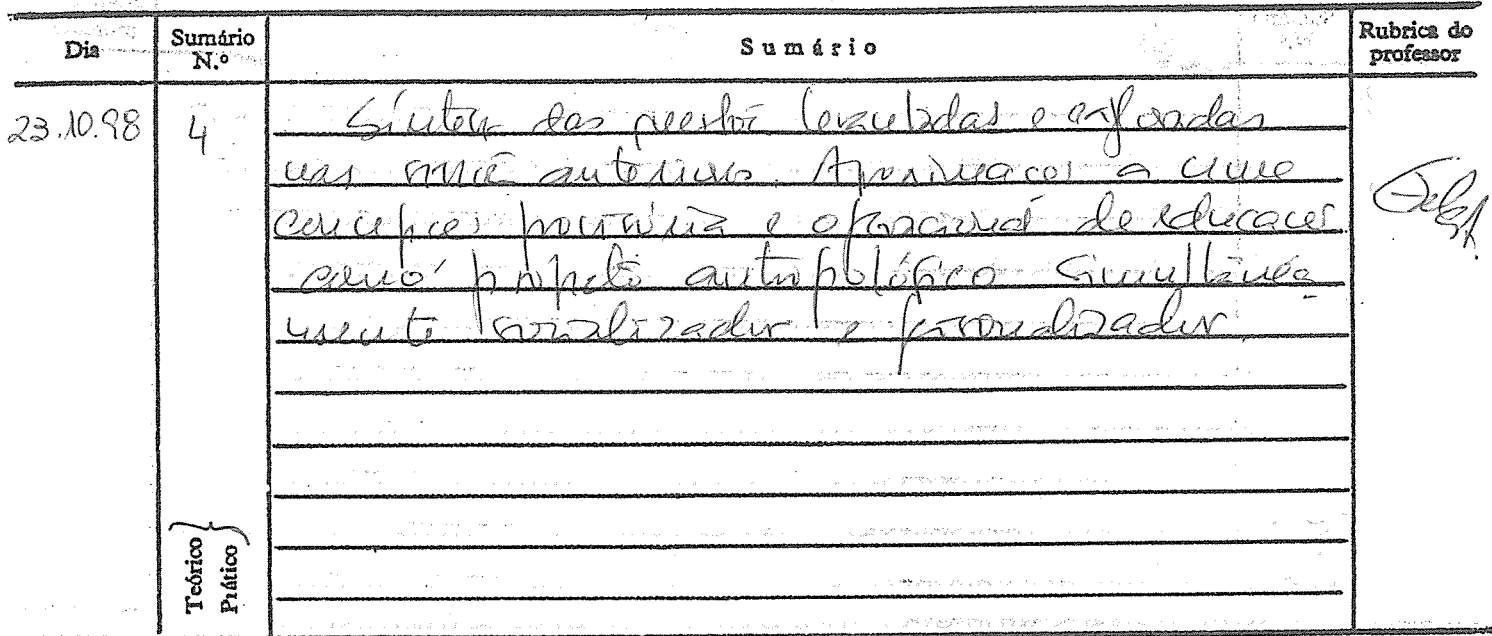 Dia
Sumário N.º
Sumário
Rubrica do professor
23.10.98
4
Síntese das questões levantadas e exploradas
nas anteriores. Aproximação a uma
concepção provisória e operacional de educação
como projeto antropológico simultânea
mente socializador e personalizador
Teórico
Prático